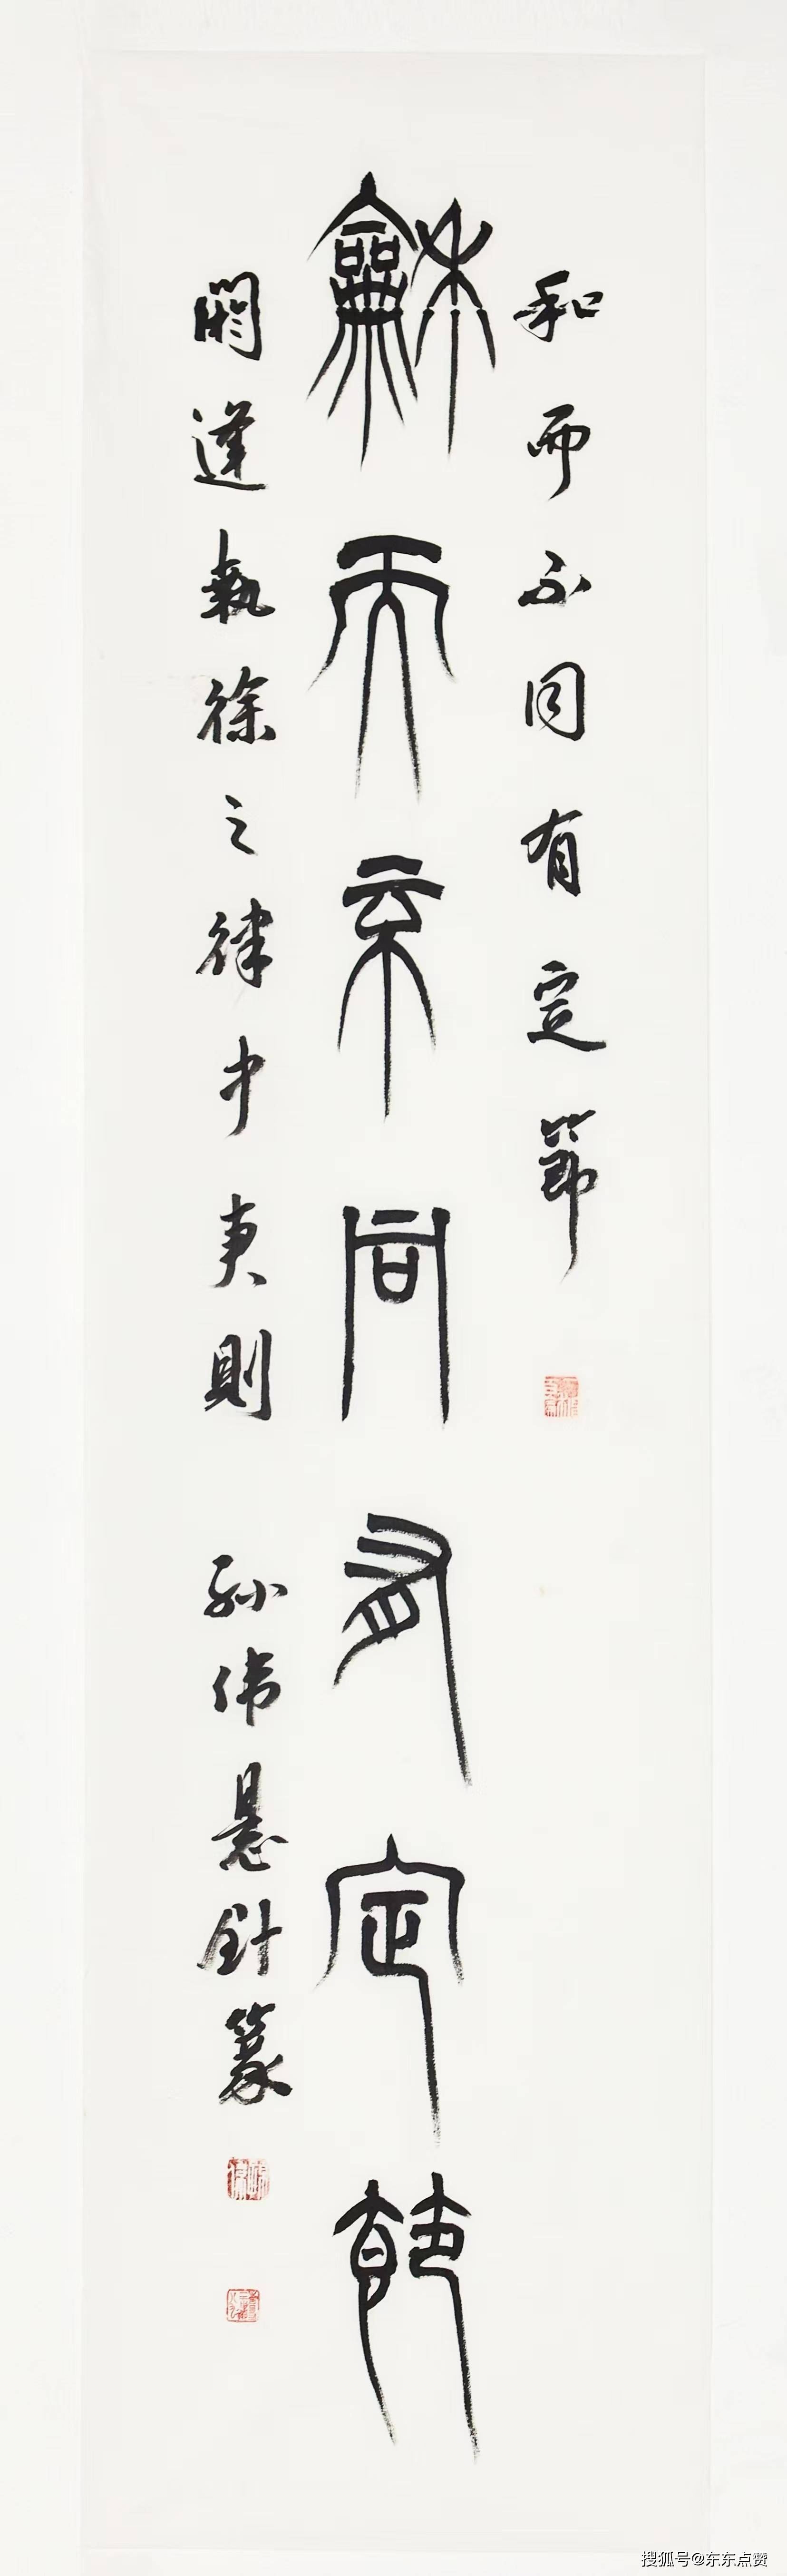 和而不同有定節
龢而不同有定節
閼逢執徐之律中夷則
孙伟悬针篆
搜狐号@东东点赞